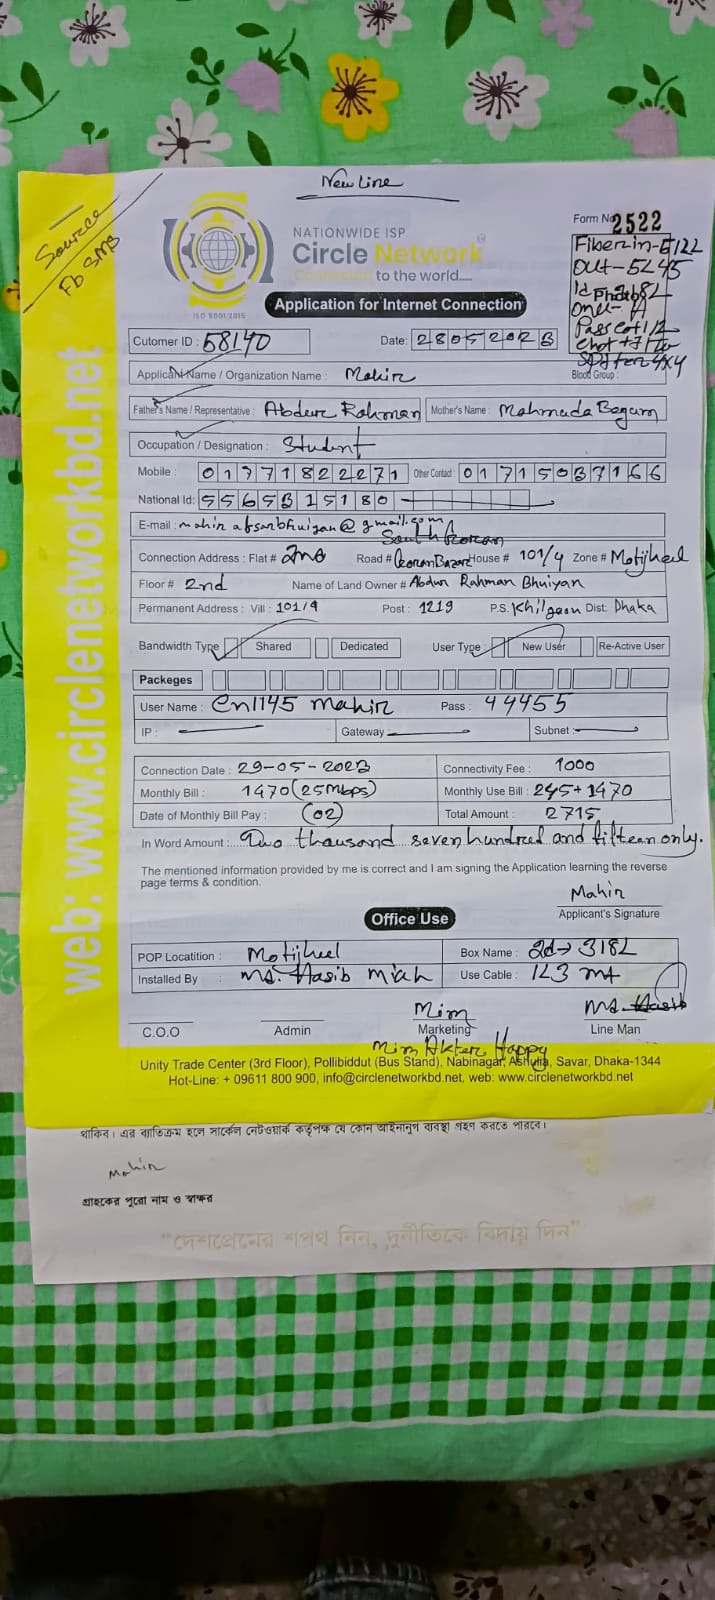 New Line
Source
Fb SMS
NATIONWIDE ISP
Circle Network
Connected to the world.....
ISO 9001:2015
Form No 2522
Fiber in - E122
Out - 5245
Application for Internet Connection
Cutomer ID : 58140 Date: 28052023
Applicant Name / Organization Name : Mahir Blood Group :
Father's Name / Representative : Abdur Rahman Mother's Name : Mahmuda Begum
Occupation / Designation : Student
Mobile : 01771822271 Other Contact : 01715037166
National Id: 5565315180
E-mail : mahir absarbhuiyan@gmail.com
South Goran
Connection Address : Flat # 2nd Road # Goran Bazar House # 101/4 Zone # Motijheel
Floor # 2nd Name of Land Owner # Abdur Rahman Bhuiyan
Permanent Address : Vill : 101/4 Post : 1219 P.S. Khilgaon Dist: Dhaka
Bandwidth Type Shared Dedicated User Type : New User Re-Active User
Packeges
User Name : cn1145 mahir Pass : 44455
IP : Gateway : Subnet :
Connection Date : 29-05-2023 Connectivity Fee : 1000
Monthly Bill : 1470 (25Mbps) Monthly Use Bill : 245+1470
Date of Monthly Bill Pay : (02) Total Amount : 2715
In Word Amount : Two thousand seven hundred and fifteen only.
The mentioned information provided by me is correct and I am signing the Application learning the reverse
page terms & condition.
Mahir
Applicant's Signature
Office Use
POP Locatition : Motijheel Box Name : 2d→318L
Installed By : Md. Hasib Miah Use Cable : 123 mt
Mim Md. Hasib
C.O.O Admin Marketing Line Man
Mim Akter Happy
Unity Trade Center (3rd Floor), Pollibiddut (Bus Stand), Nabinagar, Ashulia, Savar, Dhaka-1344
Hot-Line: + 09611 800 900, info@circlenetworkbd.net, web: www.circlenetworkbd.net
web: www.circlenetworkbd.net
থাকিব। এর ব্যতিক্রম হলে সার্কেল নেটওয়ার্ক কর্তৃপক্ষ যে কোন আইনানুগ ব্যবস্থা গ্রহণ করতে পারবে।
Mahir
গ্রাহকের পুরো নাম ও স্বাক্ষর
“দেশপ্রেমের শপথ নিন, দুর্নীতিকে বিদায় দিন”